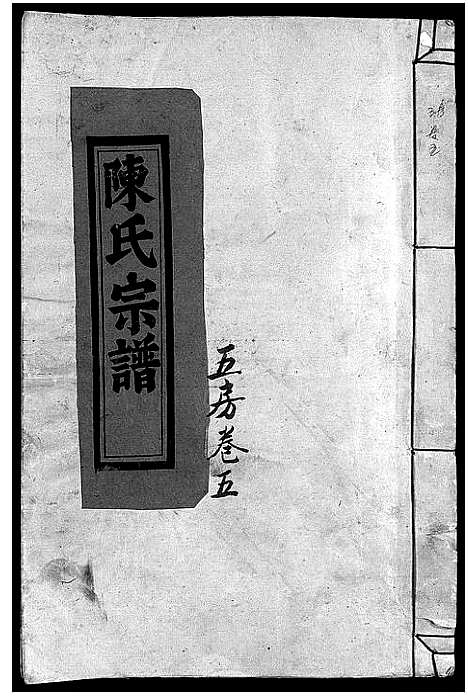 陳氏宗譜
五房卷五